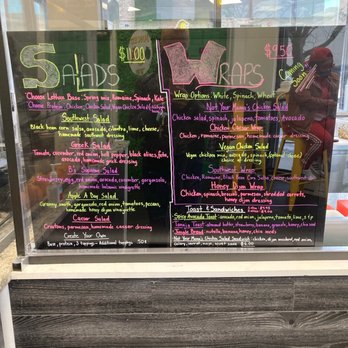 Salads $11.00
Choose Lettuce Base: Spring mix, Romaine, Spinach, Kale
Choose Protein: Chicken, Chicken Salad
Southwest Salad
Black bean corn salsa, avocado, cilantro, lime, cheese
homemade southwest dressing
Greek Salad
Tomato, cucumber, red onion, bell pepper, black olives, feta,
avocado, homemade greek dressing
Salad
Strawberry, egg, red onion, avocado, cucumber, gorgonzola,
homemade balsamic vinaigrette
Apple A Day Salad
Granny smith, gorgonzola, red onion, tomatoes, pecans,
honey dijon vinaigrette
Caesar Salad
Croutons, parmesan, homemade caesar dressing
Create Your Own
Base, protein, 3 toppings - Additional toppings .50¢
Wraps $9.50
Coming Soon
Wrap Options: White, Spinach, Wheat
Not Your Mama's Chicken Salad
Chicken salad, spinach, jalapeno, tomatoes, avocado
Chicken Caesar Wrap
Chicken, romaine, parmesan, homemade caesar dressing
Vegan Chicken Salad
Vegan chicken mix, avocado, spinach
Southwest Wrap
Chicken, Romaine, Black Bean Corn Salsa, cheese, southwest
Honey Dijon Wrap
Chicken, spinach, broccoli, parmesan, shredded carrots,
honey dijon dressing
Toast & Sandwiches
Spicy Avocado Toast: avocado, red onion, jalapeno, tomato, lime, s & p
Toast: almond butter, strawberry, banana, granola, honey, chia seed
Jungle Bread: nutella, banana, honey, chia seeds
Not Your Mama's Chicken Salad Sandwich: chicken, dijon mustard, red onion,
celery